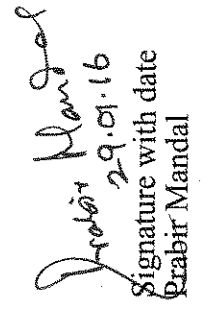 Prabir Mandal
29.01.16
Signature with date
Prabir Mandal